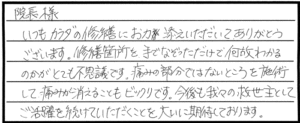 院長様
いつもカラダの修繕にお力添えいただいてありがとう
ございます。修繕箇所を手でなぞっただけで何故わかる
のかがとても不思議です。痛みの部分ではないところを施術
して痛みが消えることもビックリです。今後も我々の救世主として
ご活躍を続けていただくことを大いに期待しております。